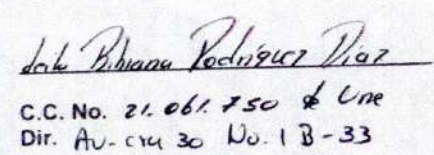 Bibiana Rodríguez Diaz
C.C. No. 21.061.750 de Une
Dir. Av-cra 30 No. 1 B-33